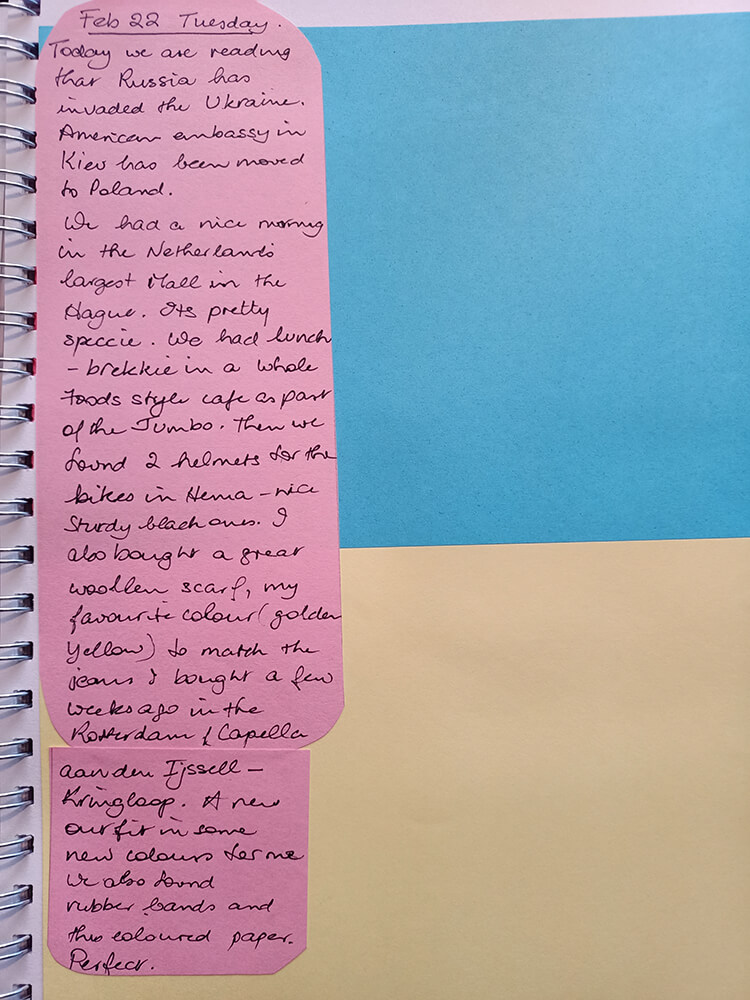 Feb 22 Tuesday.
Today we are reading
that Russia has
invaded the Ukraine.
American embassy in
Kiev has been moved
to Poland.
We had a nice morning
in the Netherlands
largest Mall in the
Hague. Its pretty
speccie. We had lunch
- brekkie in a whole
foods style cafe as part
of the Jumbo. Then we
found 2 helmets for the
bikes in Hema - nice
sturdy black ones. I
also bought a great
woollen scarf, my
favourite colour (golden
yellow) to match the
jeans I bought a few
weeks ago in the
Rotterdam & Capella
aan den Ijssell -
Kringloop. A new
outfit in some
new colours for me
We also found
rubber bands and
this coloured paper.
Perfect.